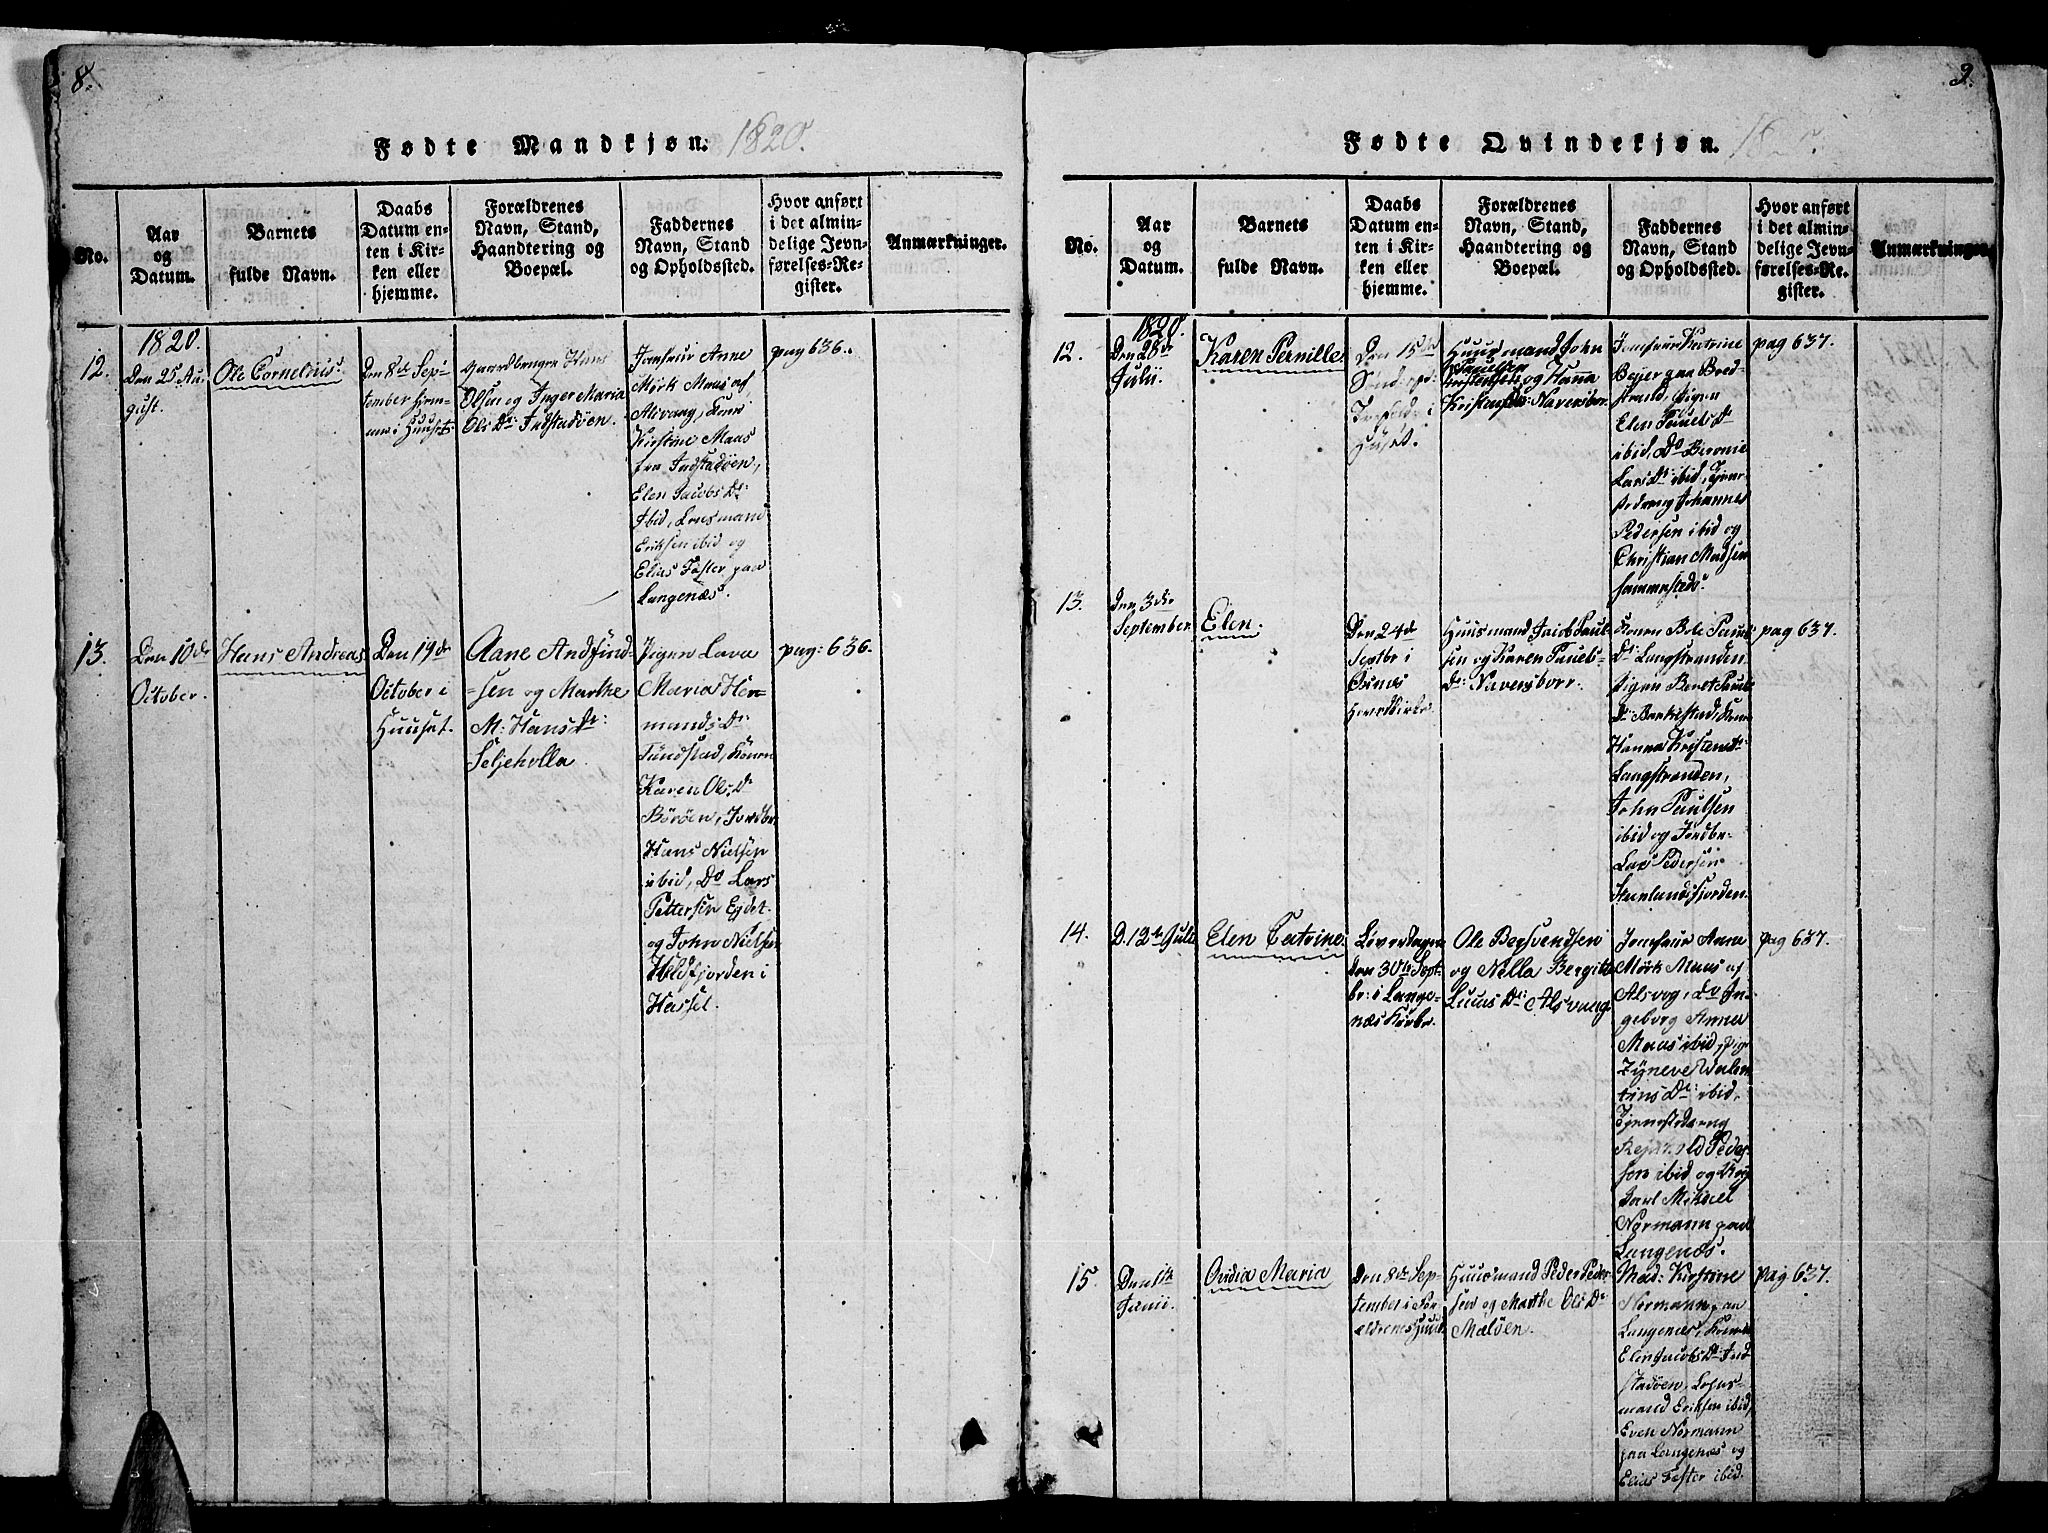 8.
Fødte Mandkjøn. 1820.
No.
Aar
og
Datum.
Barnets
fulde Navn.
Daabs
Datum en-
ten i Kir-
ken eller
hjemme.
Forældrenes
Navn, Stand,
Haandtering og
Boepæl.
Faddernes
Navn, Stand
og Opholdssted.
Hvor anført
i det almin-
delige Jevn-
førelses-Re-
gister.
Anmærkninger.
12.
1820.
Den 25 Au-
gust.
Ole Cornelius.
Den 8de Sep-
tember hjem-
me i Huuset.
Hans
Olsen og Inger Maria
Ols Dr: Indstadöen.
Jomfrur Anne
Mörk Maas af
Alsvang, Kone
Kirstine Maas
fra Indstadöen,
Elen Jacobs Dr:
ibid, Losmann
Eriksen ibid og
Elias Faster paa
Langenæs.
pag 636.
13.
Den 10de
October.
Hans Andreas
Den 19de
October i
Huuset.
Aane Andfind-
sen og Marthe
M: Hans Dr:
Seljeholla
Pigen Lava
Maria Her-
mands Dr:
Tundstad, Konen
Karen Ols Dr
Böröen, Jordbr.
Hans Nielsen
ibid, Do Lars
Pettersen Egdet.
og John Nielsen
Hildfjorden i
Hassel.
pag: 636.
9.
Fødte Qvindekjøn.
No.
Aar
og
Datum.
Barnets
fulde Navn.
Daabs
Datum en-
ten i Kir-
ken eller
hjemme.
Forældrenes
Navn, Stand,
Haandtering og
Boepæl.
Faddernes
Navn, Stand
og Opholdssted.
Hvor anført
i det almin-
delige Jevn-
førelses-Re-
gister.
Anmærkninger
12.
1820.
Den 28de
Julii.
Karen Pernille
Den 15de
i
Huset.
Huusmand John
Paulsen
og Hanna
Kristens Dr: Naversbor.
Jomfrue Katrine
Beyer paa Bred-
strand, Pigen
Elen Pauels Dr
ibid, Do Beronie
Lars Dr: ibid, Tjene-
stedreng Johannes
Pedersen ibid og
Christian Madsen
sammesteds.
pag 637.
13.
Den 3die
September.
Elen.
Den 24de
Septbr i
Öxnæs
Hovedkirke.
Huusmand Jacob Paul-
sen og Karen Pauels-
Dr: Naversborr.
Konen Bole Pauls
Dr: Langstranden
Pigen Beret Pauls
Dr: Barkestad, Kone
Hanna Kristens Dr:
Langstranden,
John Paulsen
ibid og Jordbr.
Lars Pedersen
Steenlandsfjorden.
pag 637.
14.
D. 12te Julii
Elen Catrine
Løverdagen
den 30te Sept-
br: i Lange-
næs Kirke.
Ole Bersvendsen
og Nella Bergitte
Lucas Dr: Alsvaag
Jomfrur Anne
Mörk Maas af
Alsvog, Do In-
geborg Anna
Maas ibid, Pige
Zyneve Valen-
tins Dr: ibid,
Tjenestdreng
Reinhold Peder-
sen ibid og
Mikael
Normann paa
Langenæs.
pag 637.
15.
Den 1te
Junii.
Ovidia Maria
Den 8de Sep-
tember i For-
ældrenes Huus.
Huusmand Peder Peder-
sen og Marthe Ols Dr
Malöen.
Mad: Kirstine
Normann paa
Langenæs, Kone
Elen Jacobs Dr Ind-
stadöen, Losus-
mand Eriksen ibid,
Even Normann
paa Langenæs og
Elias Faster ibid.
pag 637.